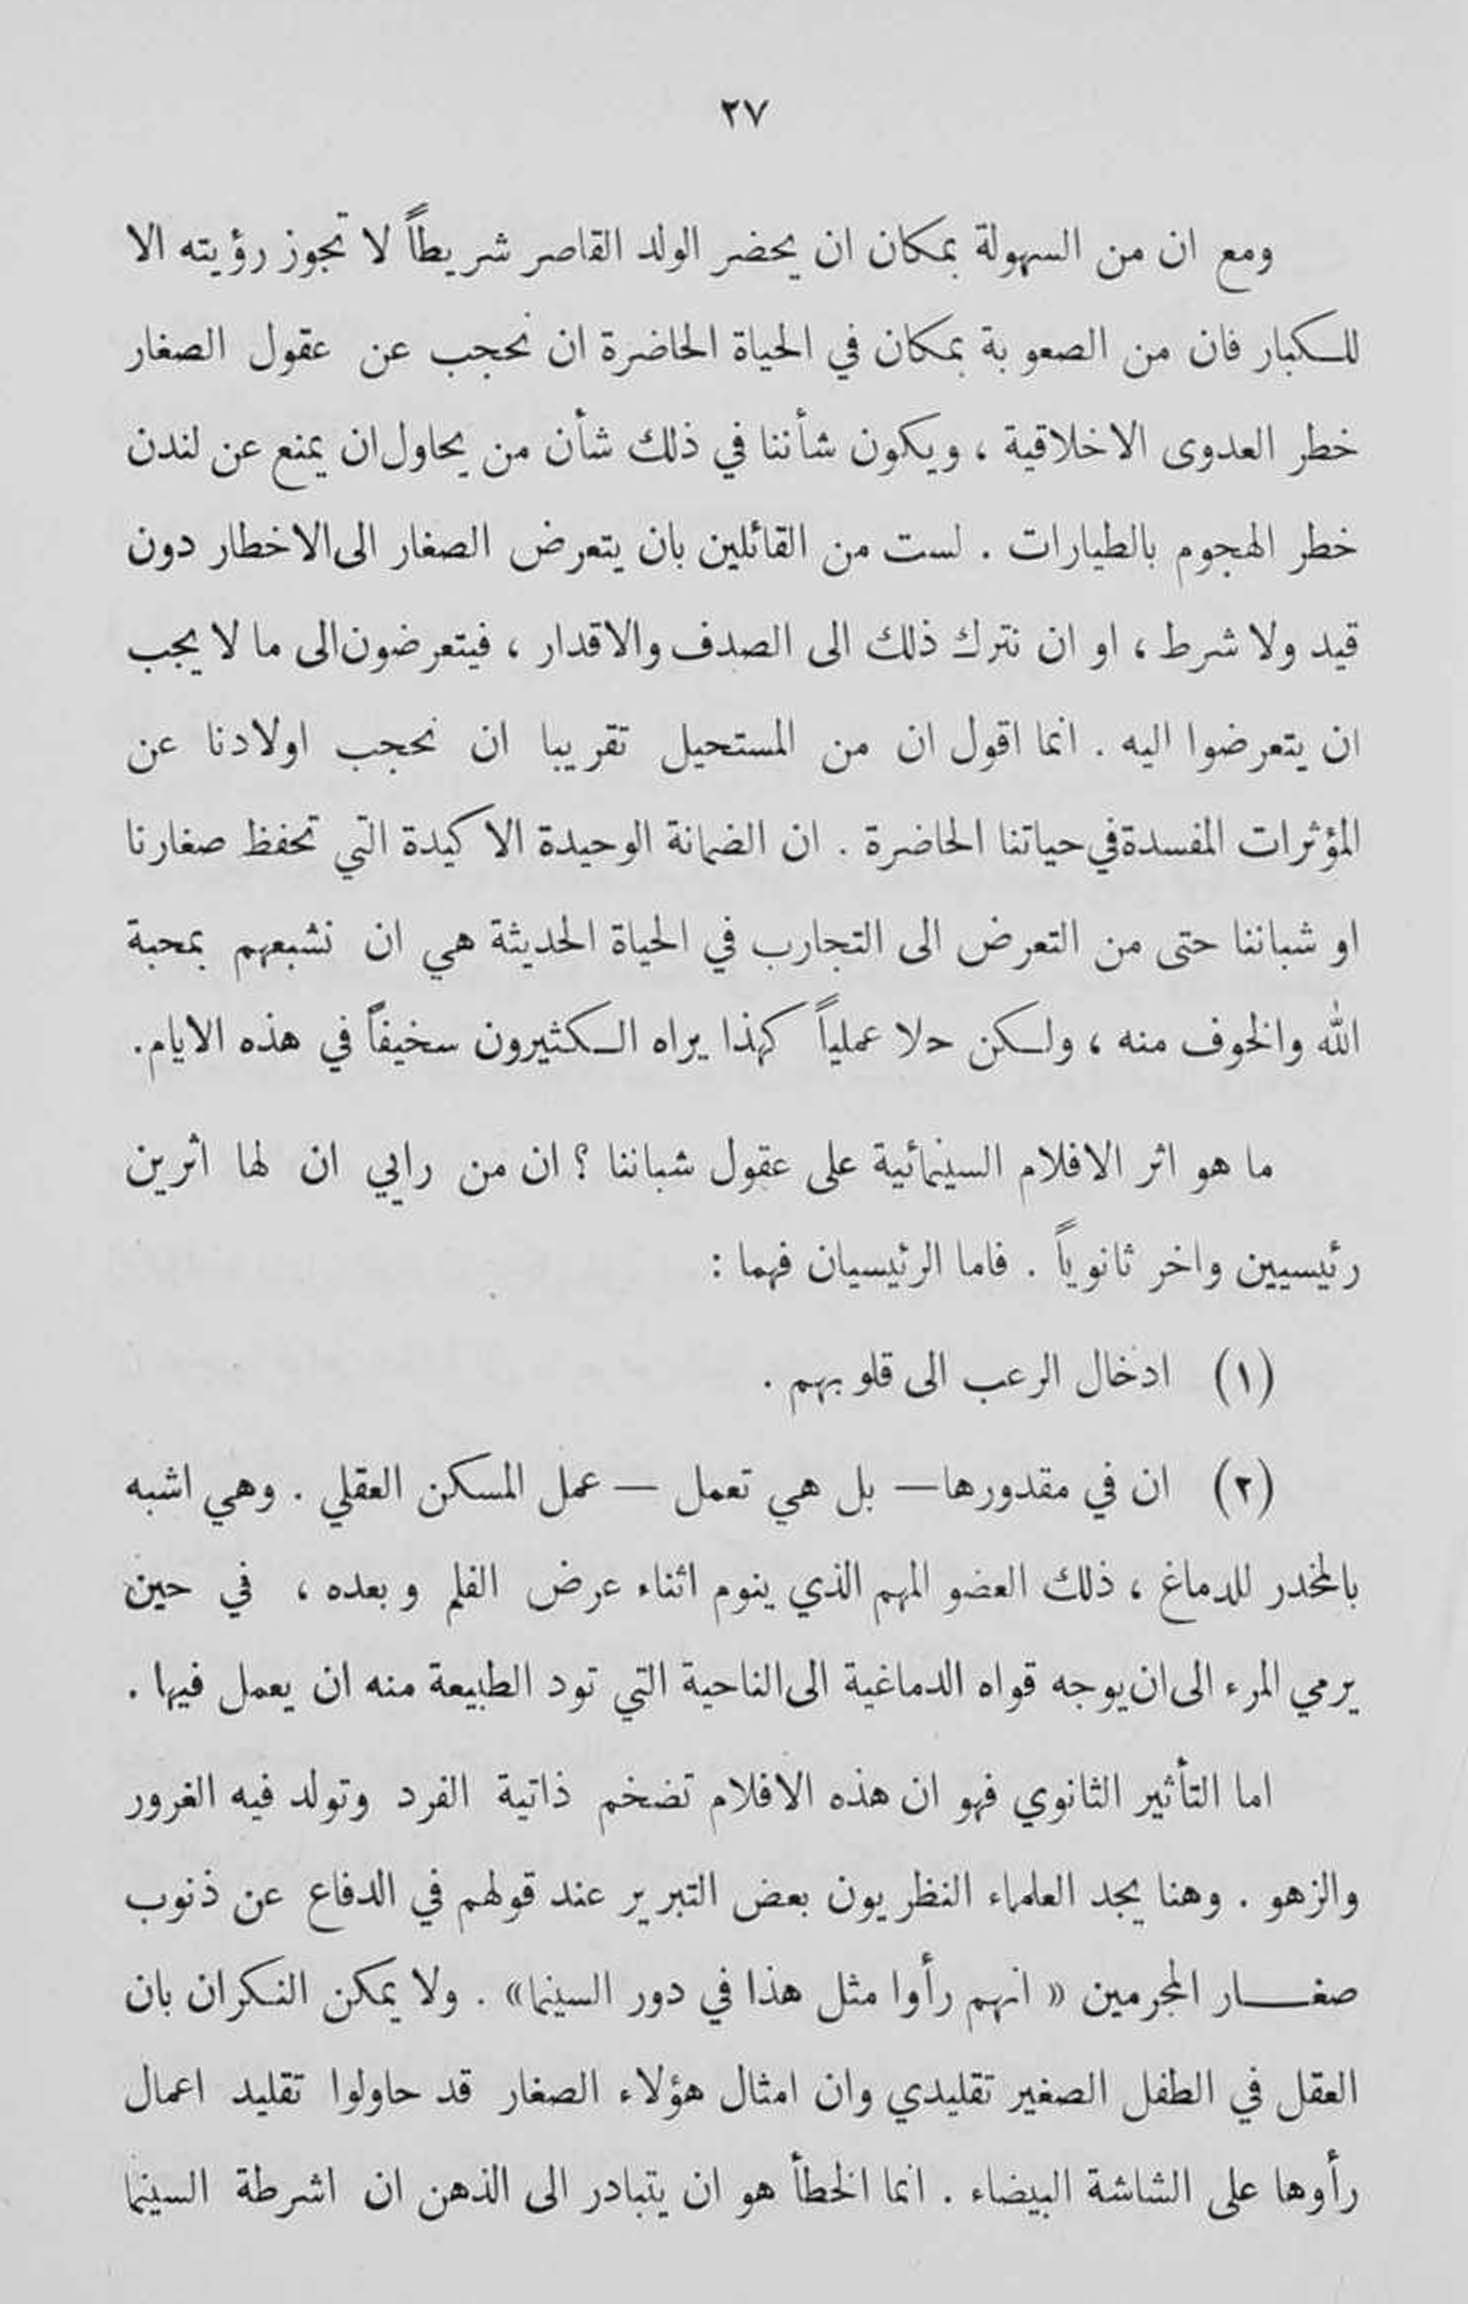 ٢٧
ومع ان من السهولة بمكان ان يحضر الولد القاصر شريطاً لا تجوز رؤيته الا
للكبار فان من الصعوبة بمكان في الحياة الحاضرة ان نحجب عن عقول الصغار
خطر العدوى الاخلاقية ، ويكون شأننا في ذلك شأن من يحاول ان يمنع عن لندن
خطر الهجوم بالطيارات . لست من القائلين بان يتعرض الصغار الى الاخطار دون
قيد ولا شرط ، او ان نترك ذلك الى الصدف والاقدار ، فيتعرضون الى ما لا يجب
ان يتعرضوا اليه . انما اقول ان من المستحيل تقريبا ان نحجب اولادنا عن
المؤثرات المفسدة في حياتنا الحاضرة . ان الضمانة الوحيدة الاكيدة التي تحفظ صغارنا
او شباننا حتى من التعرض الى التجارب في الحياة الحديثة هي ان نشبعهم بمحبة
الله والخوف منه ، ولكن حلا عملياً كهذا يراه الكثيرون سخيفاً في هذه الايام.
ما هو اثر الافلام السينمائية على عقول شباننا ؟ ان من رايي ان لها اثرين
رئيسيين واخر ثانوياً . فاما الرئيسيان فهما :
(١) ادخال الرعب الى قلوبهم .
(٢) ان في مقدورها — بل هي تعمل — عمل المسكن العقلي . وهي اشبه
بالمخدر للدماغ ، ذلك العضو المهم الذي ينوم اثناء عرض الفلم وبعده ، في حين
يرمي المرء الى ان يوجه قواه الدماغية الى الناحية التي تود الطبيعة منه ان يعمل فيها .
اما التأثير الثانوي فهو ان هذه الافلام تضخم ذاتية الفرد وتولد فيه الغرور
والزهو . وهنا يجد العلماء النظريون بعض التبرير عند قولهم في الدفاع عن ذنوب
صغار المجرمين « انهم رأوا مثل هذا في دور السينما» . ولا يمكن النكران بان
العقل في الطفل الصغير تقليدي وان امثال هؤلاء الصغار قد حاولوا تقليد اعمال
رأوها على الشاشة البيضاء . انما الخطأ هو ان يتبادر الى الذهن ان اشرطة السينما